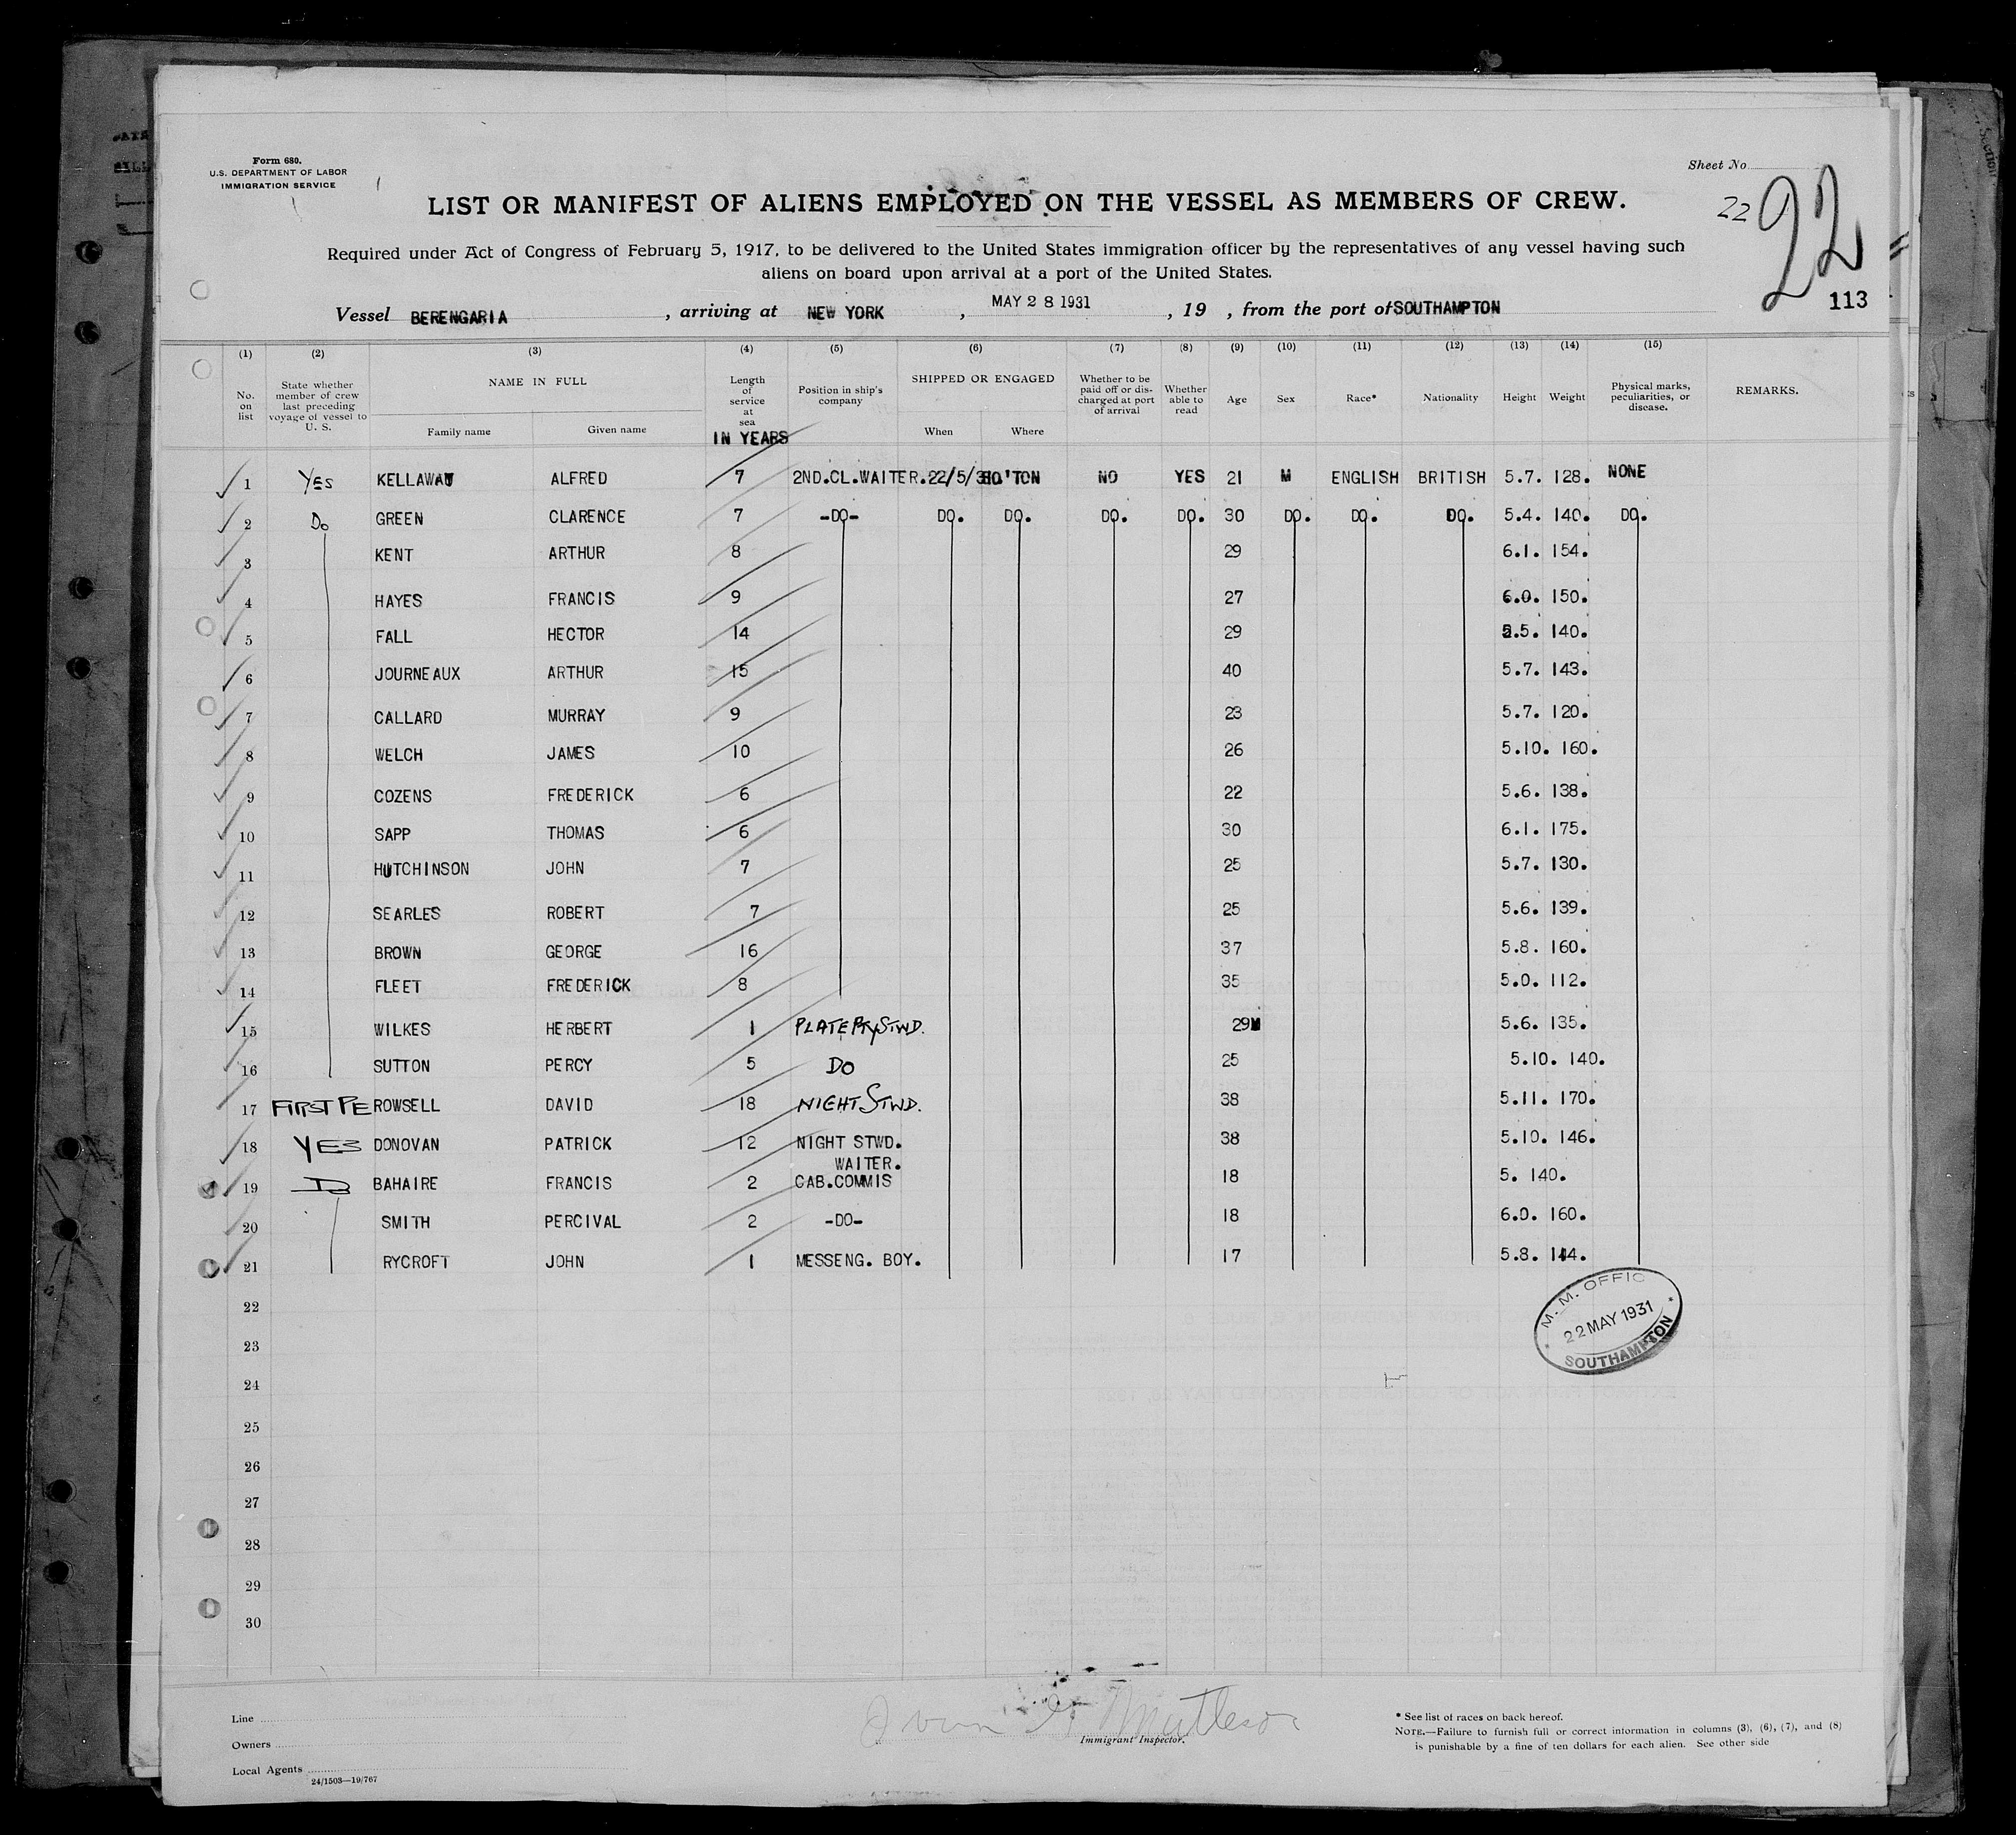 Form 680.
U.S. DEPARTMENT OF LABOR
IMMIGRATION SERVICE
Sheet No.
LIST OR MANIFEST OF ALIENS EMPLOYED ON THE VESSEL AS MEMBERS OF CREW.
22 22
Required under Act of Congress of February 5, 1917, to be delivered to the United States immigration officer by the representatives of any vessel having such
aliens on board upon arrival at a port of the United States.
113
Vessel BERENGARIA, arriving at NEW YORK, MAY 28 1931, 19 , from the port of SOUTHAMPTON
(1) (2) (3) (4) (5) (6) (7) (8) (9) (10) (11) (12) (13) (14) (15)
No. on list
State whether member of crew last preceding voyage of vessel to U. S.
NAME IN FULL
Family name
Given name
Length of service at sea
IN YEARS
Position in ship's company
SHIPPED OR ENGAGED
When
Where
Whether to be paid off or discharged at port of arrival
Whether able to read
Age
Sex
Race*
Nationality
Height
Weight
Physical marks, peculiarities, or disease.
REMARKS.
1 YES KELLAWAY ALFRED 7 2ND.CL.WAITER. 22/5/31 SO'TON NO YES 21 M ENGLISH BRITISH 5.7. 128. NONE
2 Do GREEN CLARENCE 7 -DO- DO. DO. DO. DO. 30 DO. DO. DO. 5.4. 140. DO.
3 KENT ARTHUR 8 29 6.1. 154.
4 HAYES FRANCIS 9 27 6.0. 150.
5 FALL HECTOR 14 29 5.5. 140.
6 JOURNEAUX ARTHUR 15 40 5.7. 143.
7 CALLARD MURRAY 9 23 5.7. 120.
8 WELCH JAMES 10 26 5.10. 160.
9 COZENS FREDERICK 6 22 5.6. 138.
10 SAPP THOMAS 6 30 6.1. 175.
11 HUTCHINSON JOHN 7 25 5.7. 130.
12 SEARLES ROBERT 7 25 5.6. 139.
13 BROWN GEORGE 16 37 5.8. 160.
14 FLEET FREDERICK 8 35 5.0. 112.
15 WILKES HERBERT 1 PLATE PTY STWD. 29M 5.6. 135.
16 SUTTON PERCY 5 DO 25 5.10. 140.
17 FIRST PE ROWSELL DAVID 18 NIGHT STWD. 38 5.11. 170.
18 YES DONOVAN PATRICK 12 NIGHT STWD. 38 5.10. 146.
WAITER.
19 Do BAHAIRE FRANCIS 2 CAB.COMMIS 18 5. 140.
20 SMITH PERCIVAL 2 -DO- 18 6.0. 160.
21 RYCROFT JOHN 1 MESSENG. BOY. 17 5.8. 144.
22
23
24
25
26
27
28
29
30
M. M. OFFIC
22 MAY 1931
SOUTHAMPTON
Line
Owners
Local Agents
24/1503—19/767
Immigrant Inspector.
* See list of races on back hereof.
NOTE.—Failure to furnish full or correct information in columns (3), (6), (7), and (8)
is punishable by a fine of ten dollars for each alien. See other side